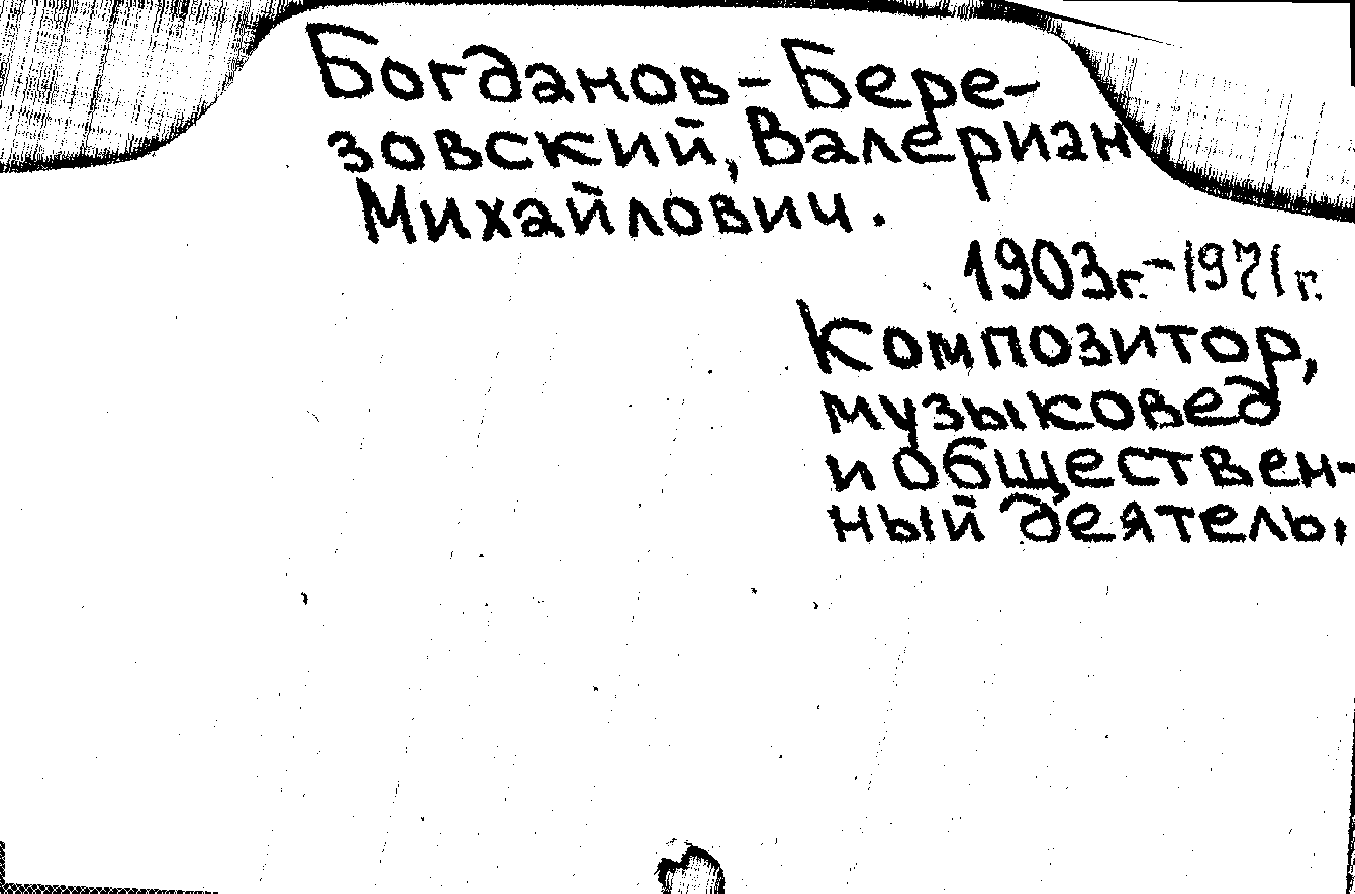 Богданов-Бере-
зовский, Валериан
Михайлович.
1903г.-1971г.
Композитор,
музыковед
и обществен-
ный деятель,